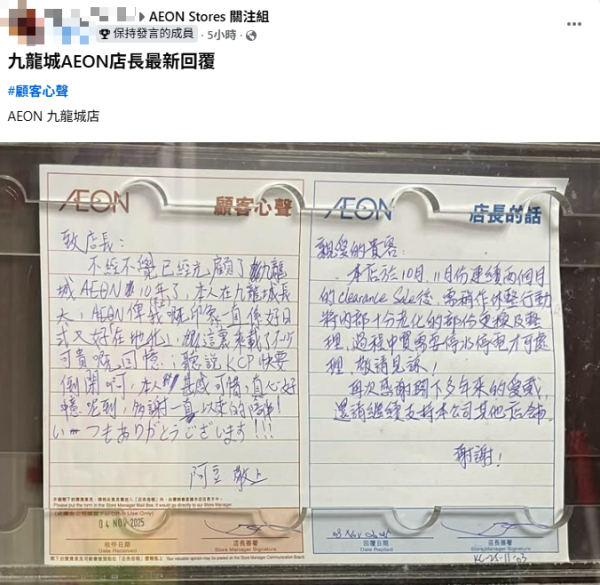 AEON Stores 關注組
保持發言的成員 · 5小時 ·
九龍城AEON店長最新回覆
#顧客心聲
AEON 九龍城店
AEON 顧客心聲
致店長：
不經不覺已經光顧了九龍
城AEON 10年了，本人在九龍城長
大，AEON俾我嘅印象一直係好日
式又好在地化，呢裏承載了不少
可貴嘅回憶；聽說KCP快要
倒閉啊，本人甚感可惜，真心好
多謝一直以來的陪伴！
いつもありがとうございます！！！
阿豆 敬上
04 NOV 2025
收件日期
Date Received
店長簽署
Store Manager Signature
AEON 店長的話
親愛的貴客：
本店於10月，11月份連續兩個月
的clearance Sale後，需稍作休整行動
將內部十分老化的部份更換及整
理，過程中實需要停水停電才可處
理，敬請見諒！
再次感謝閣下多年來的愛戴，
還請繼續支持本公司其他店舖。
謝謝！
回覆日期
Date Replied
店長簽署
Store Manager Signature
KC-25-11-03